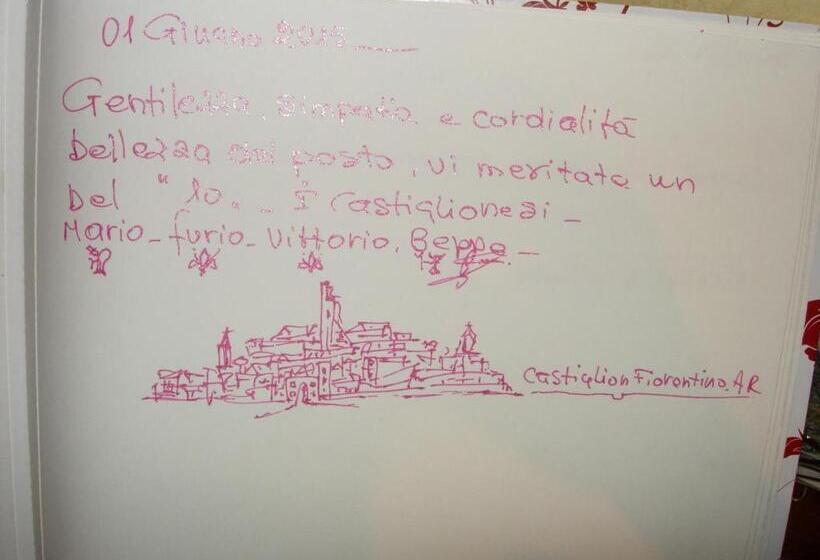 01 Giugno 2015
Gentilezza, simpatia e cordialità
bellezza del posto, vi meritate un
bel "10. _ I Castiglionesi _
Mario - furio - Vittorio. Beppe. _
Castiglion Fiorentino. AR